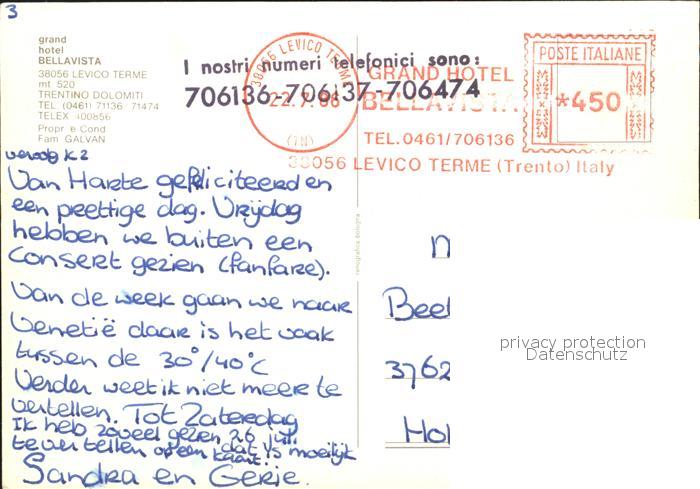 3
grand
hotel
BELLAVISTA
38056 LEVICO TERME
mt 520
TRENTINO DOLOMITI
TEL (0461) 71136/71474
TELEX 400856
Propr e Cond
Fam GALVAN
I nostri numeri telefonici sono:
706136-706137-706474
38056 LEVICO TERME
22.7.86
(TN)
GRAND HOTEL
BELLAVISTA
TEL.0461/706136
38056 LEVICO TERME (Trento) Italy
POSTE ITALIANE
*450
vervolg K2
Van Harte gefeliciteerd en
een prettige dag. Vrijdag
hebben we buiten een
Consert gezien (fanfare).
Van de week gaan we naar
Venetië daar is het vaak
tussen de 30°/40°C
Verder weet ik niet meer te
vertellen. Tot Zaterdag
Ik heb zoveel gezien 26 juli
te vertellen op een kaart. dat is moeilijk
Sandra en Gerie.
Beel
3762
Hol
privacy protection
Datenschutz